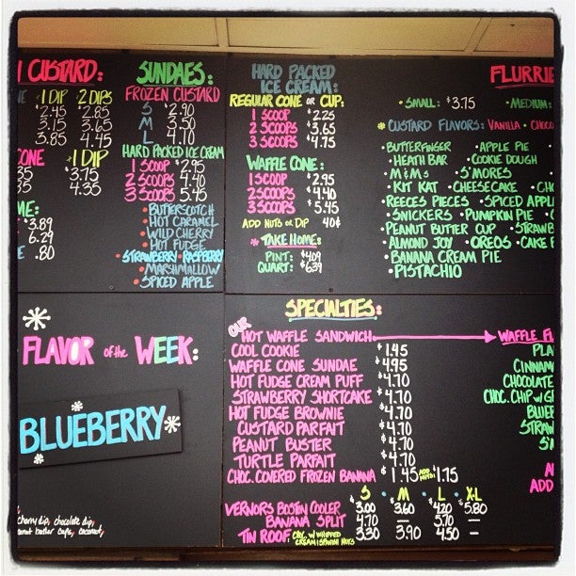 CUSTARD:
1 DIP 2 DIPS
2.45 2.85
3.15 3.65
3.85 4.45
CONE 1 DIP
35 $3.75
35 4.35
ME:
3.89
6.29
E .80
SUNDAES:
FROZEN CUSTARD
S $2.90
M 3.50
L 4.10
HARD PACKED ICE CREAM
1 SCOOP $2.95
2 SCOOPS 4.40
3 SCOOPS 5.45
• BUTTERSCOTCH
• HOT CARAMEL
• WILD CHERRY
• HOT FUDGE
• STRAWBERRY • RASPBERRY
• MARSHMALLOW
• SPICED APPLE
HARD PACKED
ICE CREAM:
REGULAR CONE OR CUP:
1 SCOOP $2.25
2 SCOOPS $3.65
3 SCOOPS $4.75
WAFFLE CONE:
1 SCOOP $2.95
2 SCOOPS $4.40
3 SCOOPS $5.45
ADD NUTS OR DIP 40¢
* TAKE HOME:
PINT: $4.09
QUART: $6.39
FLURRIE
• SMALL: $3.75 • MEDIUM:
* CUSTARD FLAVORS: VANILLA • CHOCO
• BUTTERFINGER • APPLE PIE
• HEATH BAR • COOKIE DOUGH
• M&M'S • S'MORES
• KIT KAT • CHEESECAKE • CH
• REESES PIECES • SPICED APPL
• SNICKERS • PUMPKIN PIE • C
• PEANUT BUTTER CUP • STRAWB
• ALMOND JOY • OREOS • CAKE B
• BANANA CREAM PIE
• PISTACHIO
FLAVOR of the WEEK:
BLUEBERRY
cherry dip, chocolate dip,
SPECIALTIES:
OUR
HOT WAFFLE SANDWICH WAFFLE FL
COOL COOKIE $1.45 PLA
WAFFLE CONE SUNDAE $4.95 CINNAM
HOT FUDGE CREAM PUFF $4.70 CHOCOLATE
STRAWBERRY SHORTCAKE $4.70 CHOC. CHIP W/ G
HOT FUDGE BROWNIE $4.70 BLUEB
CUSTARD PARFAIT $4.70 STRAW
PEANUT BUSTER $4.70 S'M
TURTLE PARFAIT $4.70
CHOC. COVERED FROZEN BANANA $1.45 ADD NUTS: $1.75 ADD
S • M • L • XL
VERNORS BOSTON COOLER 3.00 3.60 4.20 5.80
BANANA SPLIT 4.70 — 5.70 —
TIN ROOF: CHOC. W/ WHIPPED CREAM & SPANISH NUTS 3.30 3.90 4.50 —